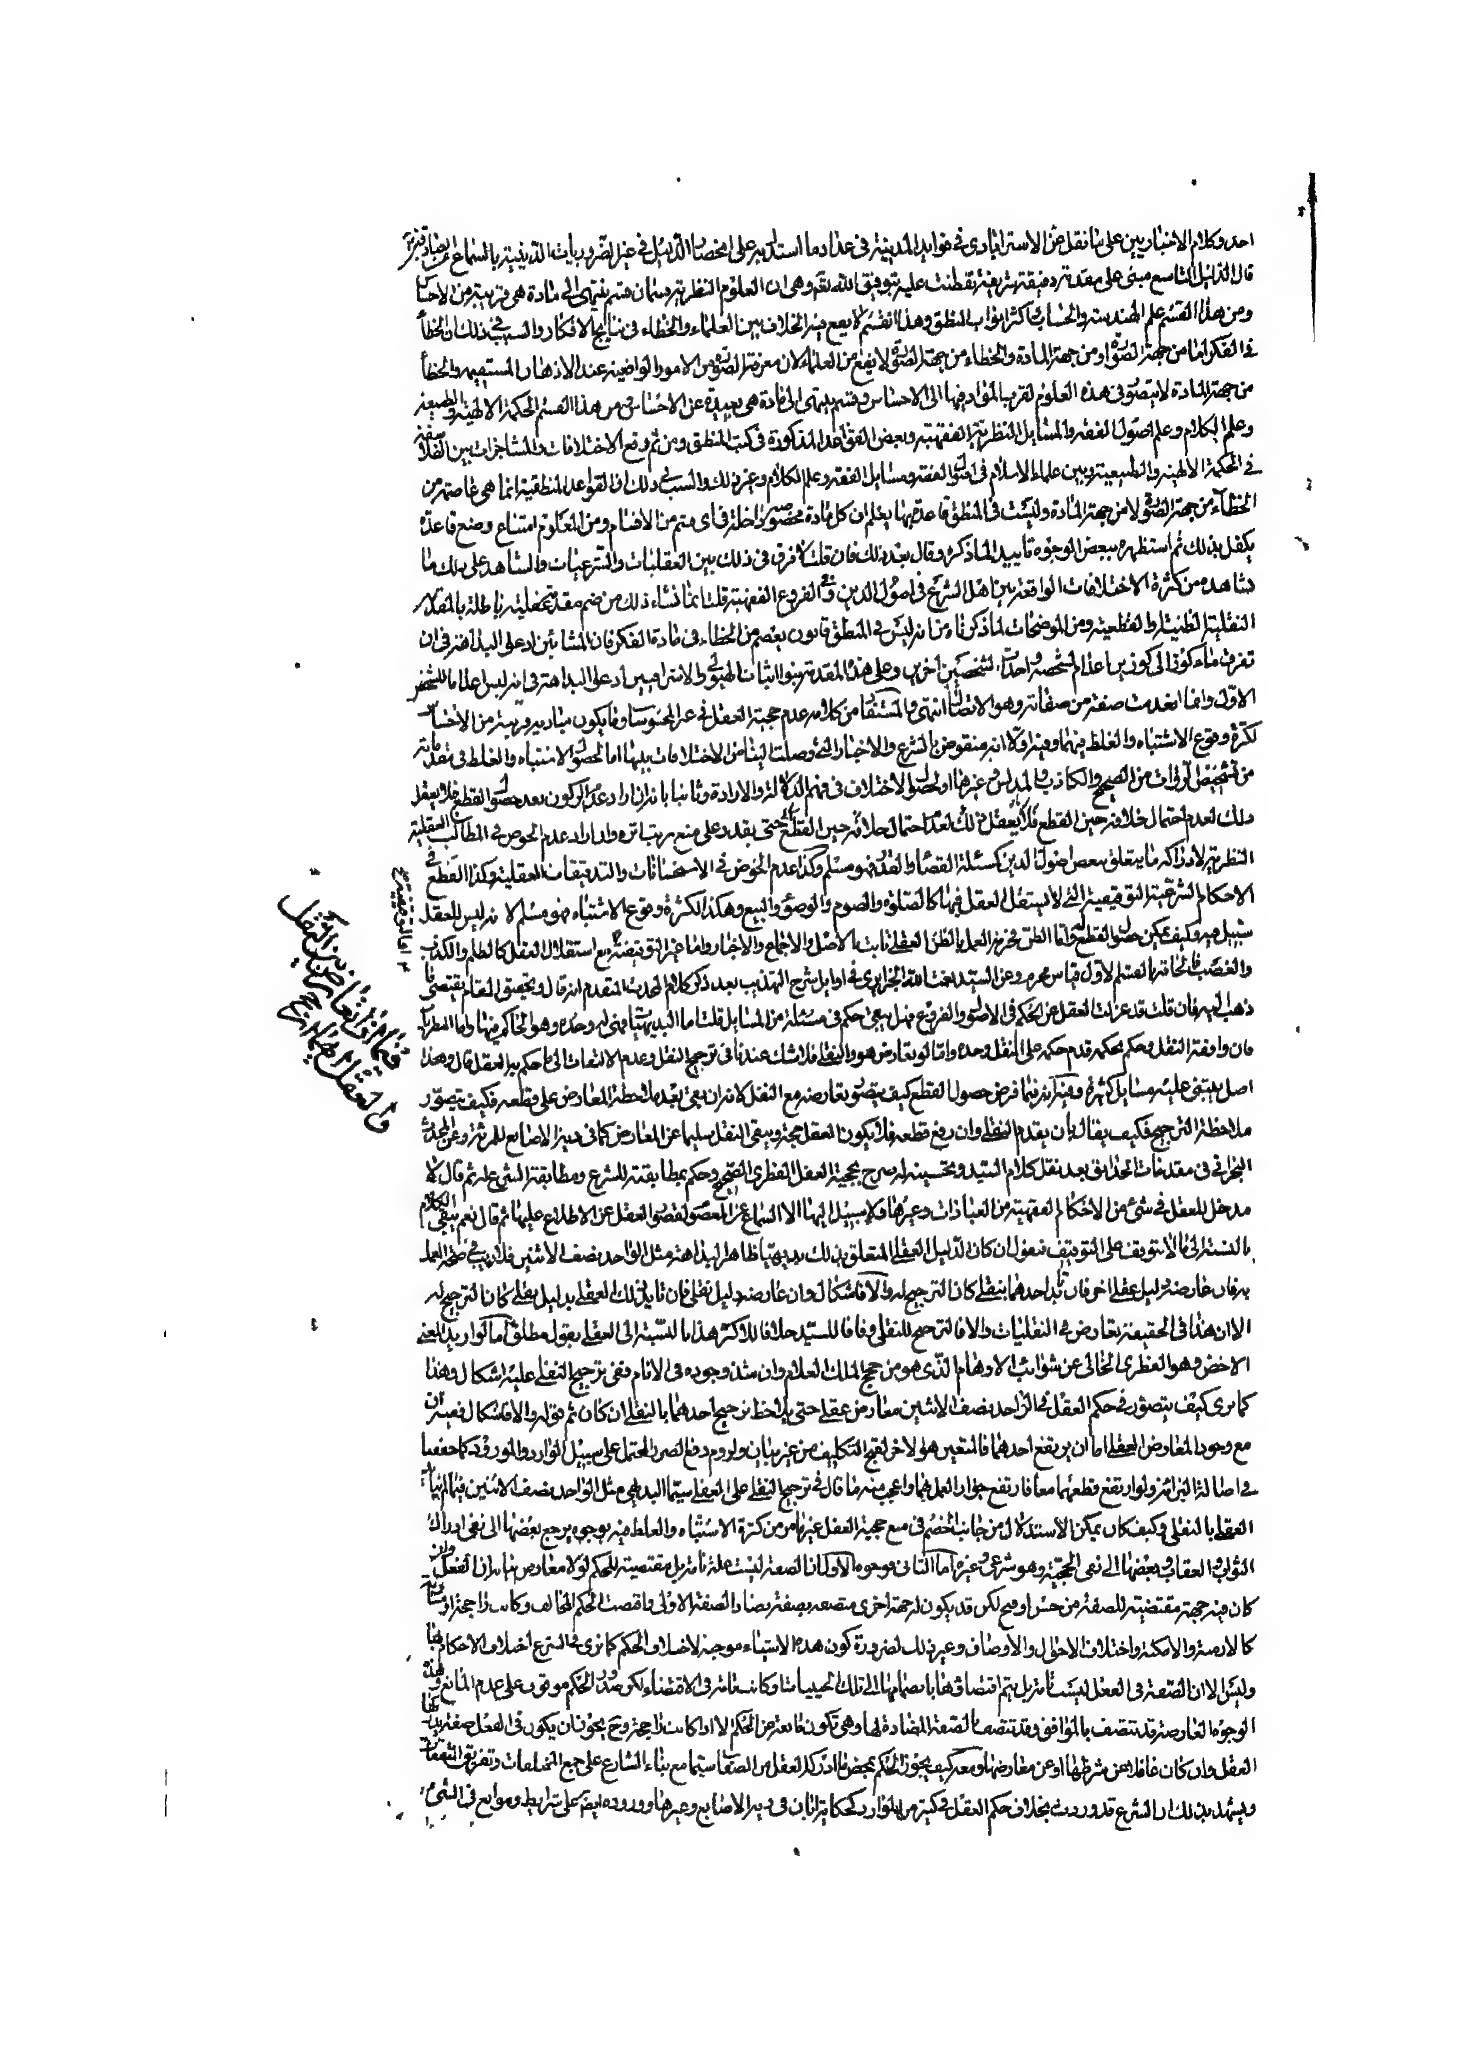 احد وكلام الاخباريين على ما نقل عن الاسترابادى فى فوايد المدنية فى عداد ما استدل به على انحصار الدليل فى غير الضروريات الدينية بالسماع عن الصادقين
قال الدليل التاسع مبنى على مقدمة دقيقة شريفة تفطنت عليه بتوفيق الله تعه وهى ان العلوم النظرية قسمان قسم ينتهى الى مادة هى قريبة من الاحساس
ومن هذا القسم علم الهندسة والحساب واكثر ابواب المنطق وهذا القسم لا يقع فيه الخلاف بين العلماء والخطاء فى نتايج الافكار والسبب فى ذلك ان الخطأ
فى الفكر اما من جهة الصورة او من جهة المادة والخطاء من جهة الصورة لا يقع من العلماء لان معرفة الصورة من الامور الواضحة عند الاذهان المستقيمة والخطأ
من جهة المادة لا يتصور فى هذه العلوم لقرب المواد فيها الى الاحساس وقسم ينتهى الى مادة هى بعيدة عن الاحساس ومن هذا القسم الحكمة الالهية والطبيعية
وعلم الكلام وعلم اصول الفقه والمسايل النظرية الفقهية وبعض القواعد المذكورة فى كتب المنطق ومن ثم وقع الاختلافات والمشاجرات بين الفلاسفة
فى الحكمة الالهية والطبيعية وبين علماء الاسلام فى اصول الفقه ومسايل الفقه وعلم الكلام وغير ذلك والسبب فى ذلك ان القواعد المنطقية انما هى عاصمة من
الخطاء من جهة الصورة لا من جهة المادة وليست فى المنطق قاعدة بها يعلم ان كل مادة مخصوصة داخلة فى اى قسم من الاقسام ومن المعلوم امتناع وضع قاعدة
يكفل بذلك ثم استظهر ببعض الوجوه تاييدا لما ذكره وقال بعد ذلك فان قلت لا فرق فى ذلك بين العقليات والشرعيات والشاهد على ذلك ما
نشاهد من كثرة الاختلافات الواقعة بين اهل الشرع فى اصول الدين وفى الفروع الفقهية قلت انما نشاء ذلك من ضم مقدمة عقلية باطلة بالمقدمة
النقلية الظنية او القطعية ومن الموضحات لما ذكرناه من انه ليس فى المنطق قانون يعصم من الخطاء فى مادة الفكر فان المشائين ادعوا البداهة فى ان
تفرق ماء كوز الى كوزين اعدام لشخصه واحداث لشخصين آخرين وعلى هذه المقدمة بنوا اثبات الهيولى والاشراقيين ادعوا البداهة فى انه ليس اعداما للشخص
الاول وانما انعدمت صفة من صفاته وهو الاتصال انتهى والمستفاد من كلامه عدم حجية العقل فى غير المحسوسات وما يكون مباديه قريبة من الاحساس
لكثرة وقوع الاشتباه والغلط فيهما وفيه اولا انه منقوض بالشرع والاخبار التى وصلت الينا من الاختلافات بينها اما لحصول الاشتباه والغلط فى مقدماته
من تشخيص الروات من الصحيح والكاذب والمدلس وغيرها او لحصول الاختلاف فى فهم الدلالة والارادة وثانيا بانه ان اراد عدم الركون بعد حصول القطع فلا يعقل
ذلك لعدم احتمال خلافه حين القطع فلا يعقل ذلك لعدم احتمال خلافه حين القطع حتى يقدر على منع ترتيب اثره وان اراد عدم الخوض فى المطالب العقلية
النظرية لادراك ما يتعلق ببعض اصول الدين كمسئلة القضاء والقدر فهو مسلم وكذا عدم الخوض فى الاستحسانات والتدقيقات العقلية وكذا القطع فى
الاحكام الشرعية التوقيفية التى لا يستقل العقل فيها كالصلوة والصوم والوضوء والبيع وهكذا لكثرة وقوع الاشتباه فهو مسلم لانه ليس للعقل
سبيل فيه وكيف يمكن حصول القطع واما الظن فحرمة العمل بالظن العقلى ثابت بالاصل والاجماع والاخبار واما غير التوقيفية مع استقلال العقل كالظلم والكذب
والغصب فالحاقها بالقسم الاول قياس محرم وعن السيد نعمت الله الجزايرى فى اوايل شرح التهذيب بعد ذكر كلام المحدث المتقدم انه قال وتحقيق المقام يقتضى ما
ذهب اليه فان قلت قد عزلت العقل عن الحكم فى الاصول والفروع فهل يبقى حكم فى مسئلة من المسايل قلت اما البديهيات فهى له وحده وهو الحاكم فيها واما النظريات
فان وافقه النقل وحكم بحكمه قدم حكمه على النقل وحده واما لو تعارض هو والنقلى فلا شك عندنا فى ترجيح النقل وعدم الالتفات الى ما حكم به العقل قال وهذا
اصل يبتنى عليه مسايل كثيرة وفيه انه فيما فرض حصول القطع كيف يتصور تعارضه مع النقل لانه ان بقى بعد ملاحظة المعارض على قطعه فكيف يتصور
ملاحظة الترجيح فكيف يقال بان يقدم النقلى وان رفع قطعه فلا يكون العقل حجة ويبقى النقل سليما عن المعارض كما فى دية الاصابع للمرئة وعن المحدث
البحرانى فى مقدمات الحدائق بعد نقل كلام السيد وتحسينه له صرح بحجية العقل الفطرى الصحيح وحكم بمطابقته للشرع ومطابقة الشرع له ثم قال لا
مدخل للعقل فى شئ من الاحكام الفقهية من العبادات وغيرها ولا سبيل اليها الا السماع عن المعصوم لقصور العقل عن الاطلاع عليها ثم قال نعم يبقى الكلام
بالنسبة الى ما لا يتوقف على التوقيف فنقول ان كان الدليل العقلى المتعلق بذلك بديهيا ظاهر البداهة مثل الواحد نصف الاثنين فلا ريب فى صحة العمل
به فان عارضه دليل عقلى اخر فان تأيد احدهما بنقلى كان الترجيح له والا فاشكال وان عارضه دليل نقلى فان تايد ذلك العقلى بدليل نقلى كان الترجيح له
الا ان هذا فى الحقيقة تعارض فى النقليات والا فالترجيح للنقلى وفاقا للسيد خلافا للاكثر هذا بالنسبة الى العقلى بقول مطلق اما لو اريد المعنى
الاخص وهو الفطرى الخالى عن شوائب الاوهام الذى هو من حجج الملك العلام وان شذ وجوده فى الانام ففى ترجيح النقلى عليه اشكال وهذا
كما ترى كيف يتصور فى حكم العقل فى الواحد نصف الاثنين معارض عقلى حتى يلاحظ ترجيح احدهما بالنقلى ان كان ثم قوله والا فاشكال فيه ان
مع وجود المعارض العقلى اما ان يرتفع احدهما فالمتعين هو الاخر لقبح التكليف من غير بيان ولزوم دفع الضرر المحتمل على سبيل الوارد والمورود كما حققنا
فى اصالة البرائة ولو ارتفع قطعهما معا فارتفع جواز العمل بهما واعجب منه ما قال فى ترجيح النقلى على العقلى سيما البديهى مثل الواحد نصف الاثنين
العقلى بالنقلى وكيف كان يمكن الاستدلال من جانب الخصم فى منع حجية العقل غير ما مر من كثرة الاشتباه والغلط فيه بوجوه يرجع بعضها الى نفى ادراك
الثواب والعقاب وبعضها الى نفى الحجية وهو شرعى وغيره اما الثانى فوجوه الاول ان الصفة ليست علة تامة بل مقتضية للحكم لولا معارض بيانه ان الفعل وان
كان فيه جهة مقتضية للصفة من حسن او قبح لكن قد يكون له جهة اخرى متصفه بصفة يضاد الصفة الاولى فاقتضت الحكم المخالف وكانت راجحة او مساوية
كالازمنة والامكنة واختلاف الاحوال والاوصاف وغير ذلك لضرورة كون هذه الاشياء موجبة لاختلاف الحكم كما نرى فى الشرع اختلاف الاحكام بها
وليس الا ان الصفة فى الفعل ليست تامة بل يتم اقتضاؤها بانضمامها الى تلك الحيثيات او كانت تامة فى الاقتضاء لكن صدور الحكم موقوف على عدم المانع وهذه
الوجوه العارضة قد تتصف بالموافق وقد تتصف بالصفة المضادة لها وهى تكون مانعة من الحكم الا اذا كانت راجحة وح يجوز ان يكون فى الفعل صفة يدركها
العقل وان كان غافلا عن شرطها او عن معارضها ومعه كيف يجوز الحكم بمحض ما ادركه العقل من الصفات سيما مع بناء الشارع على جمع المختلفات وتفريق المتفقات
ويشهد بذلك ان الشرع قد وردت بخلاف حكم العقل فى كثير من الموارد كحكاية ابان فى دية الاصابع وغيرها ووروده ايضا على شرايط وموانع فى الشئ
فيما لو تعارض بين النقل
والعقل ايهما يرجح